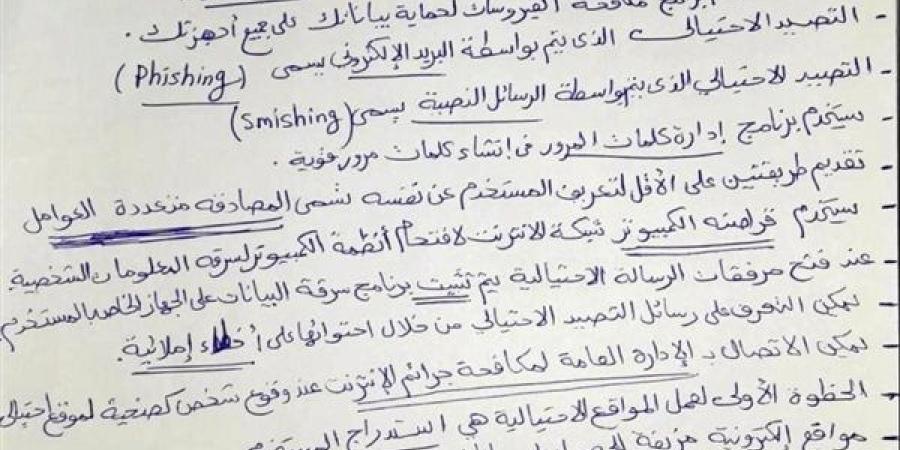 برنامج مكافحة الفيروسات لحماية بياناتك على جميع أجهزتك.
- التصيد الاحتيالي الذى يتم بواسطة البريد الإلكترونى يسمى (Phishing)
- التصيد الاحتيالي الذى يتم بواسطة الرسائل النصية يسمى (Smishing)
- يستخدم برنامج إدارة كلمات المرور فى إنشاء كلمات مرور قوية.
- تقديم طريقتين على الأقل لتعريف المستخدم عن نفسه تسمى المصادقه متعددة العوامل
- يستخدم قراصنه الكمبيوتر شبكة الانترنت لاقتحام أنظمة الكمبيوتر لسرقه المعلومات الشخصية.
- عند فتح مرفقات الرسالة الاحتيالية يتم تثبيت برنامج سرقة البيانات على الجهاز الخاص بالمستخدم.
- يمكن التعرف على رسائل التصيد الاحتيالي من خلال احتوائها على أخطاء إملائية.
- يمكن الاتصال بـ الإدارة العامة لمكافحة جرائم الإنترنت عند وقوع شخص كضحية لموقع احتيالي
- الخطوة الأولى لعمل المواقع الاحتيالية هي استدراج
- مواقع إلكترونية مزيفة